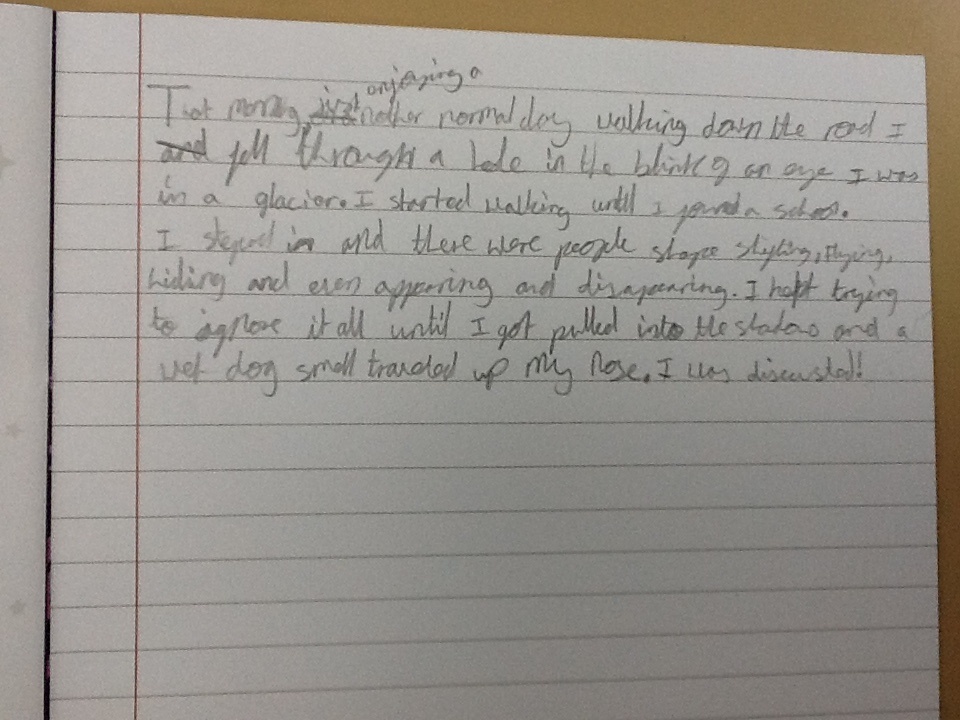 enjoying a
That morning just another normal day walking down the road I
and fell through a hole in the blink of an eye I was
in a glacier. I started walking until I found a school.
I steped in and there were people shape shifting, flying,
hiding and even appearing and disapearing. I kept trying
to ignore it all until I got pulled into the shadows and a
wet dog smell traveled up my nose. I was discusted!